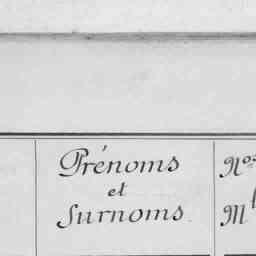 Prénoms
et
Surnoms
Nos